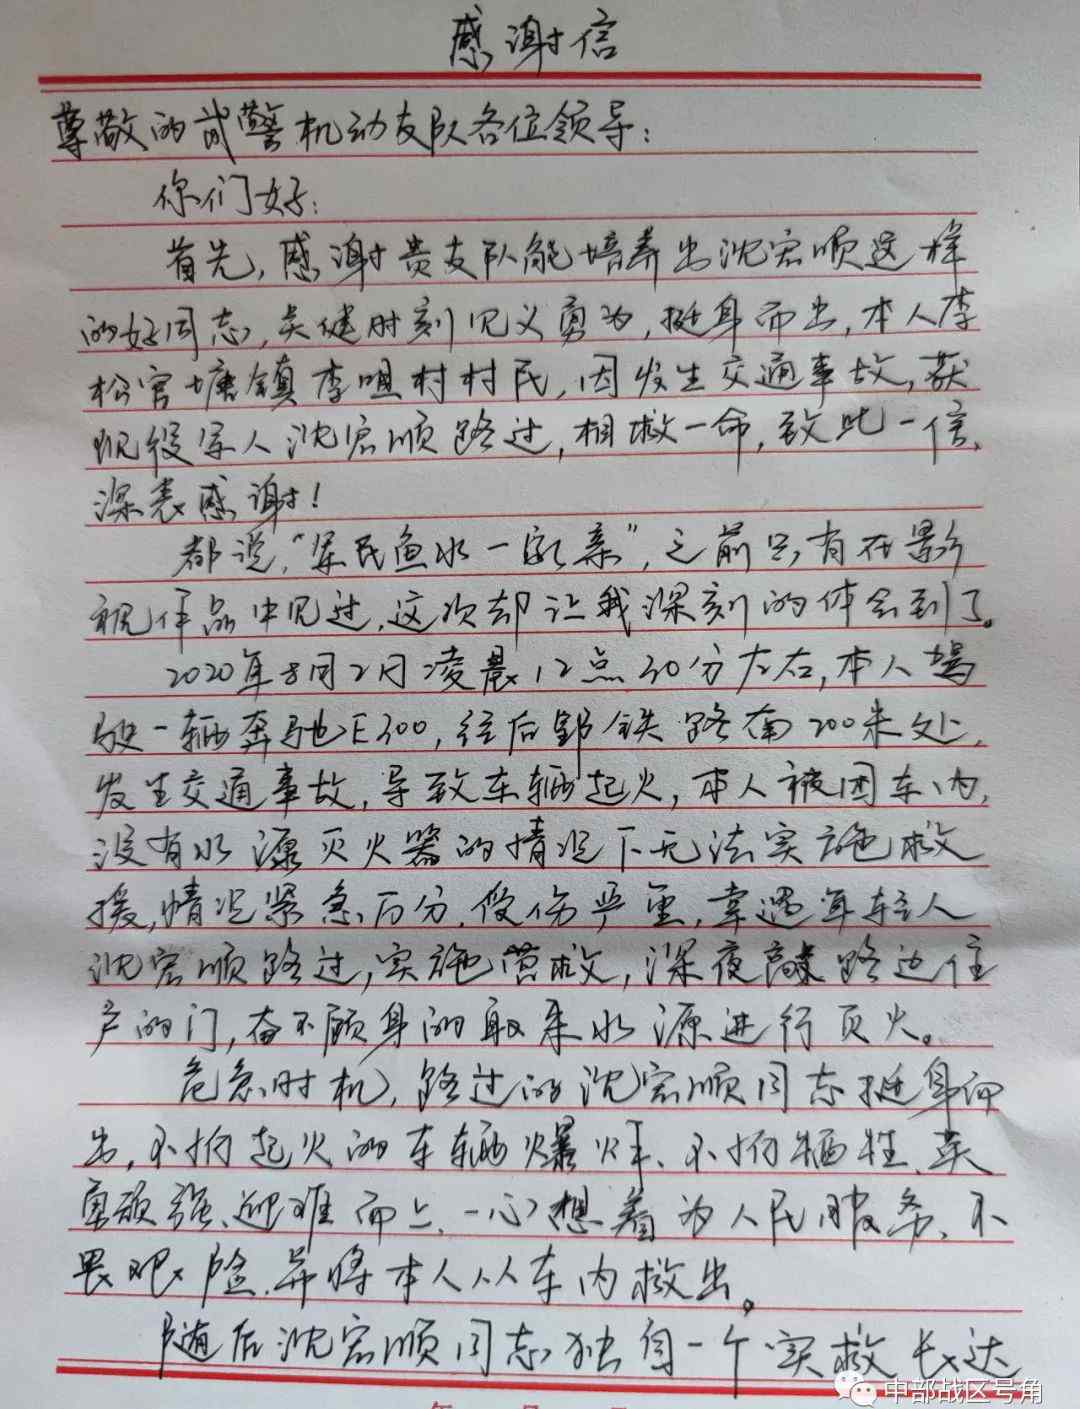 感谢信
尊敬的武警机动支队各位领导：
你们好：
首先，感谢贵支队能培养出沈宏顺这样
的好同志，关键时刻见义勇为，挺身而出，本人李
松官塘镇李咀村村民，因发生交通事故，获
现役军人沈宏顺路过，相救一命，致此一信，
深表感谢！
都说，“军民鱼水一家亲”，之前只有在影
视作品中见过，这次却让我深刻的体会到了。
2020年8月2日凌晨12点30分左右，本人驾
驶一辆奔驰E300，往后郢铁路南200米处，
发生交通事故，导致车辆起火，本人被困车内，
没有水源灭火器的情况下无法实施救
援，情况紧急万分，受伤严重，幸遇年轻人
沈宏顺路过，实施营救，深夜敲路边住
户的门，奋不顾身的取来水源进行灭火。
危急时机，路过的沈宏顺同志挺身而
出，不惧起火的车辆爆炸、不怕牺牲、英
勇顽强、迎难而上、一心想着为人民服务、不
畏艰险，并将本人从车内救出。
随后沈宏顺同志独自一个实救长达
中部战区号角